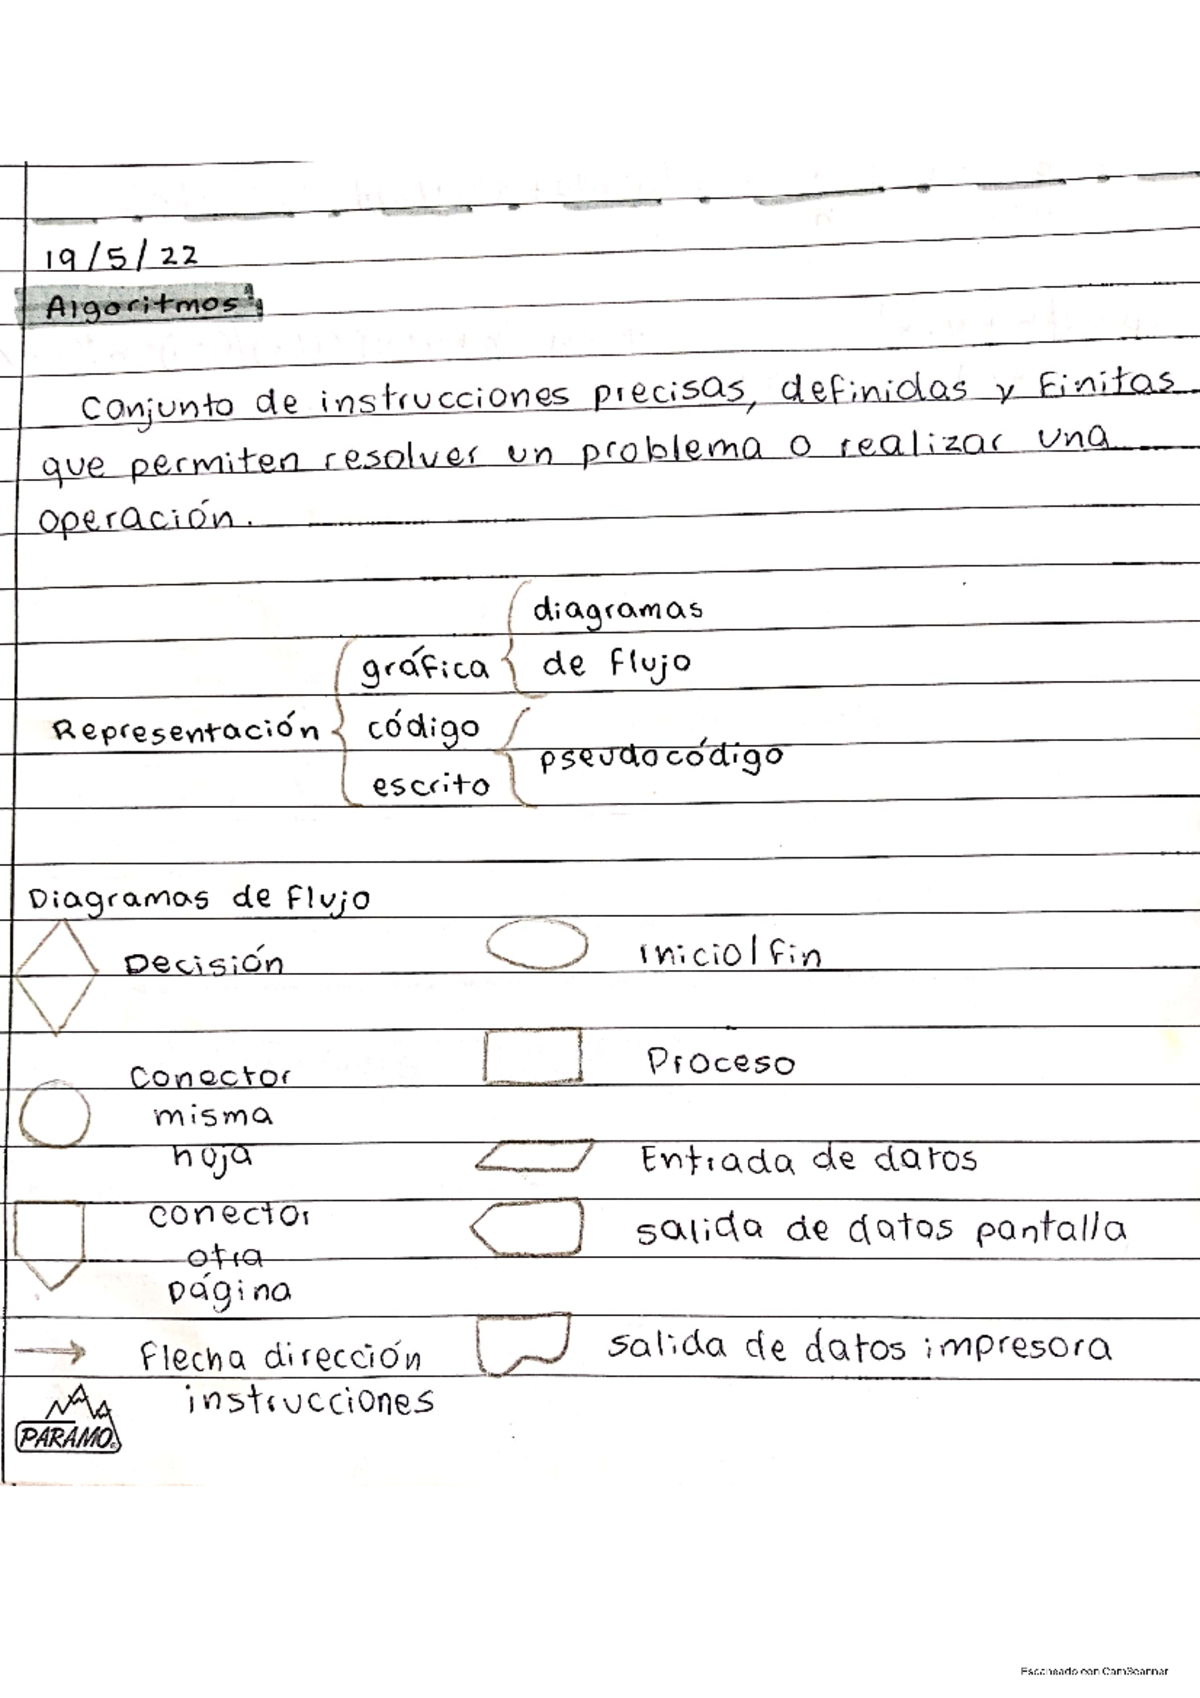 19/5/22
Algoritmos
Conjunto de instrucciones precisas, definidas y finitas
que permiten resolver un problema o realizar una
operación.
diagramas
gráfica
de flujo
Representación
código
pseudocódigo
escrito
Diagramas de flujo
Decisión
Inicio/fin
Conector
misma
hoja
Proceso
Entrada de datos
conector
otra
página
salida de datos pantalla
Flecha dirección
instrucciones
salida de datos impresora
PARAMO
Escaneado con CamScanner